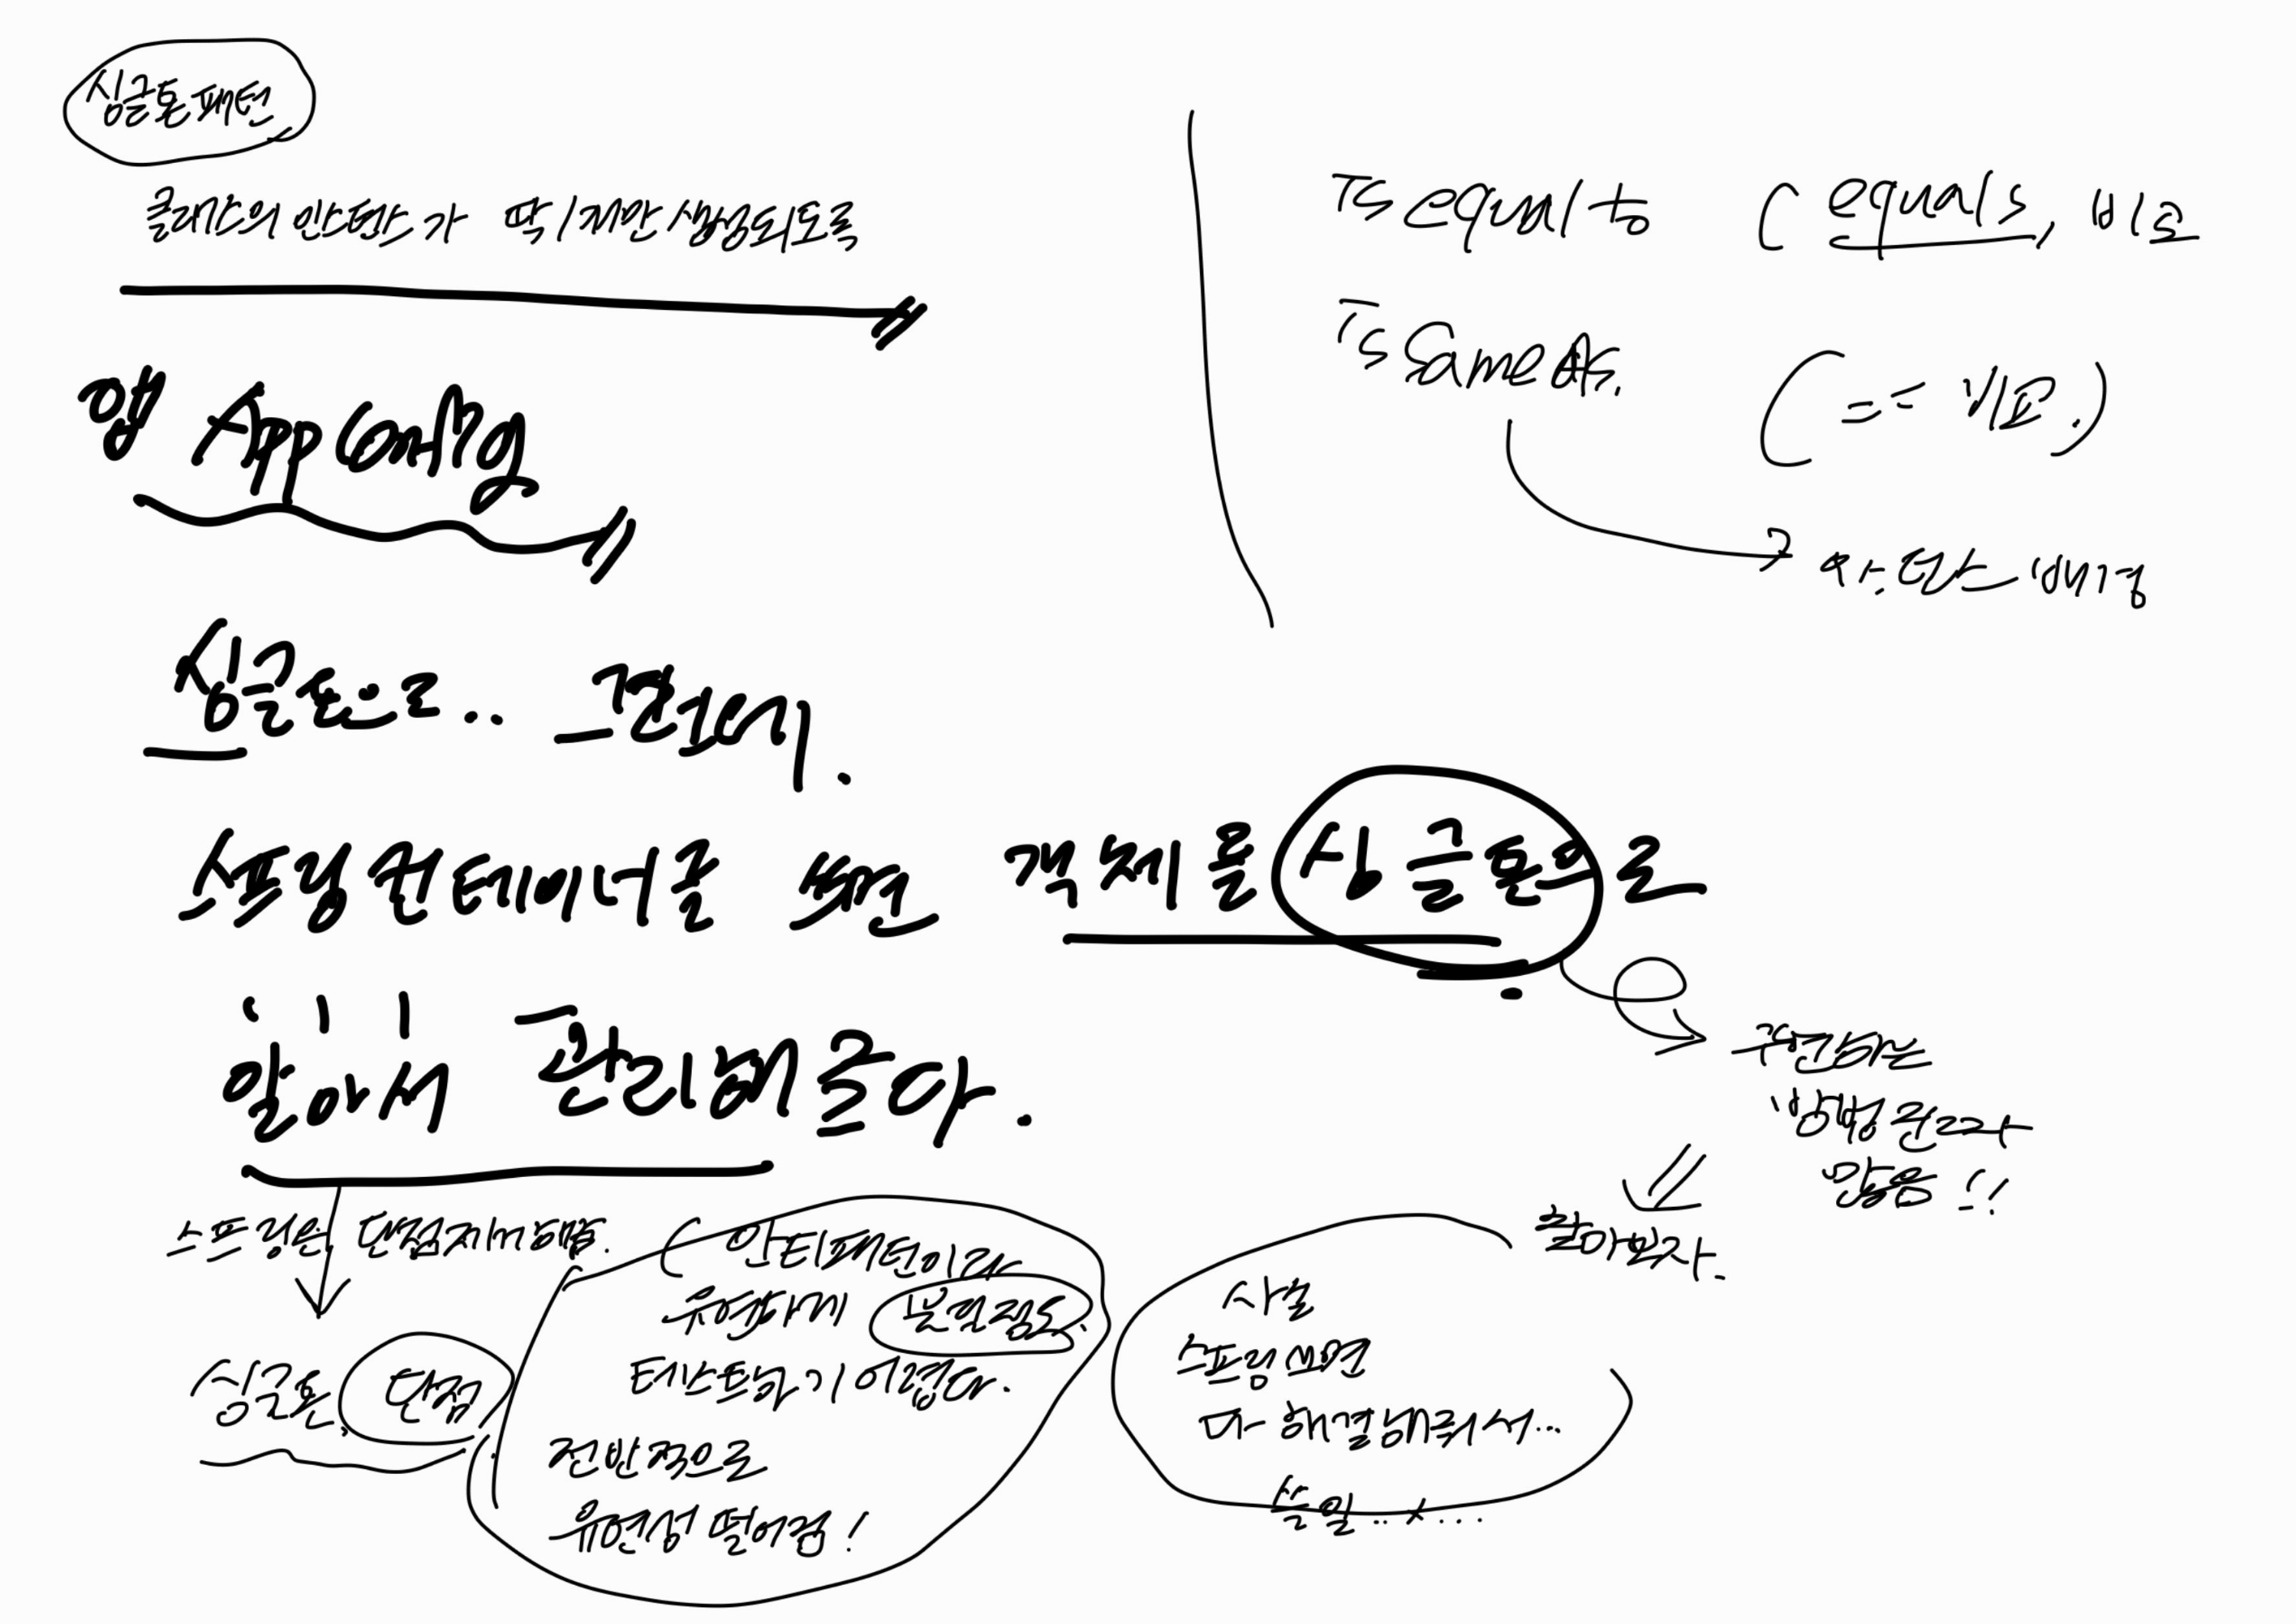 싱글톤 패턴
클래스의 인스턴스가 딱 1개만 생성되도록
앱 AppConfig
싱글톤으로..
스프링 컨테이너를 쓰면 객체를 싱글톤으로
알아서 관리해준다.
스프링은 단점 지녀해줌.
싱글톤 단점
안티패턴이라
유명하기
테스트하기 어렵다.
전반적으로
유연성 떨어짐!
사실
스프링쓰면
다 해결해줘서...
쓸일..x...
구현하는
방법 전근자
많음!!
찾아보자.
Is equal to ( equals, 비교
Is Same As. ( == 비교.)
인스턴스 비교